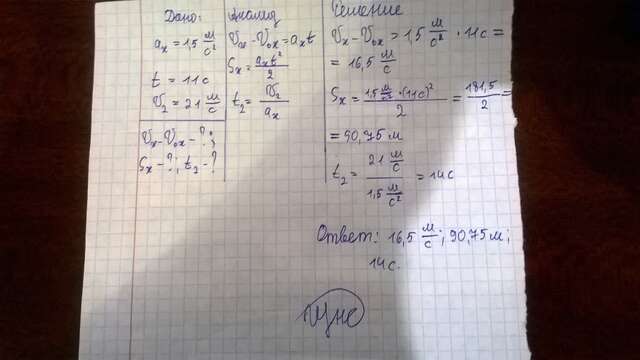 Дано:
aₓ = 1,5 м/с²
t = 11 с
υ₂ = 21 м/с
υₓ – υ₀ₓ – ?;
Sₓ – ?; t₂ – ?
Анализ
υₓ – υ₀ₓ = aₓt
Sₓ = aₓt²/2
t₂ = υ₂/aₓ
Решение
υₓ – υ₀ₓ = 1,5 м/с² · 11 с =
= 16,5 м/с
Sₓ = 1,5 м/с² · (11 с)²/2 = 181,5/2 =
= 90,75 м
t₂ = 21 м/с / 1,5 м/с² = 14 с
Ответ: 16,5 м/с; 90,75 м;
14 с.